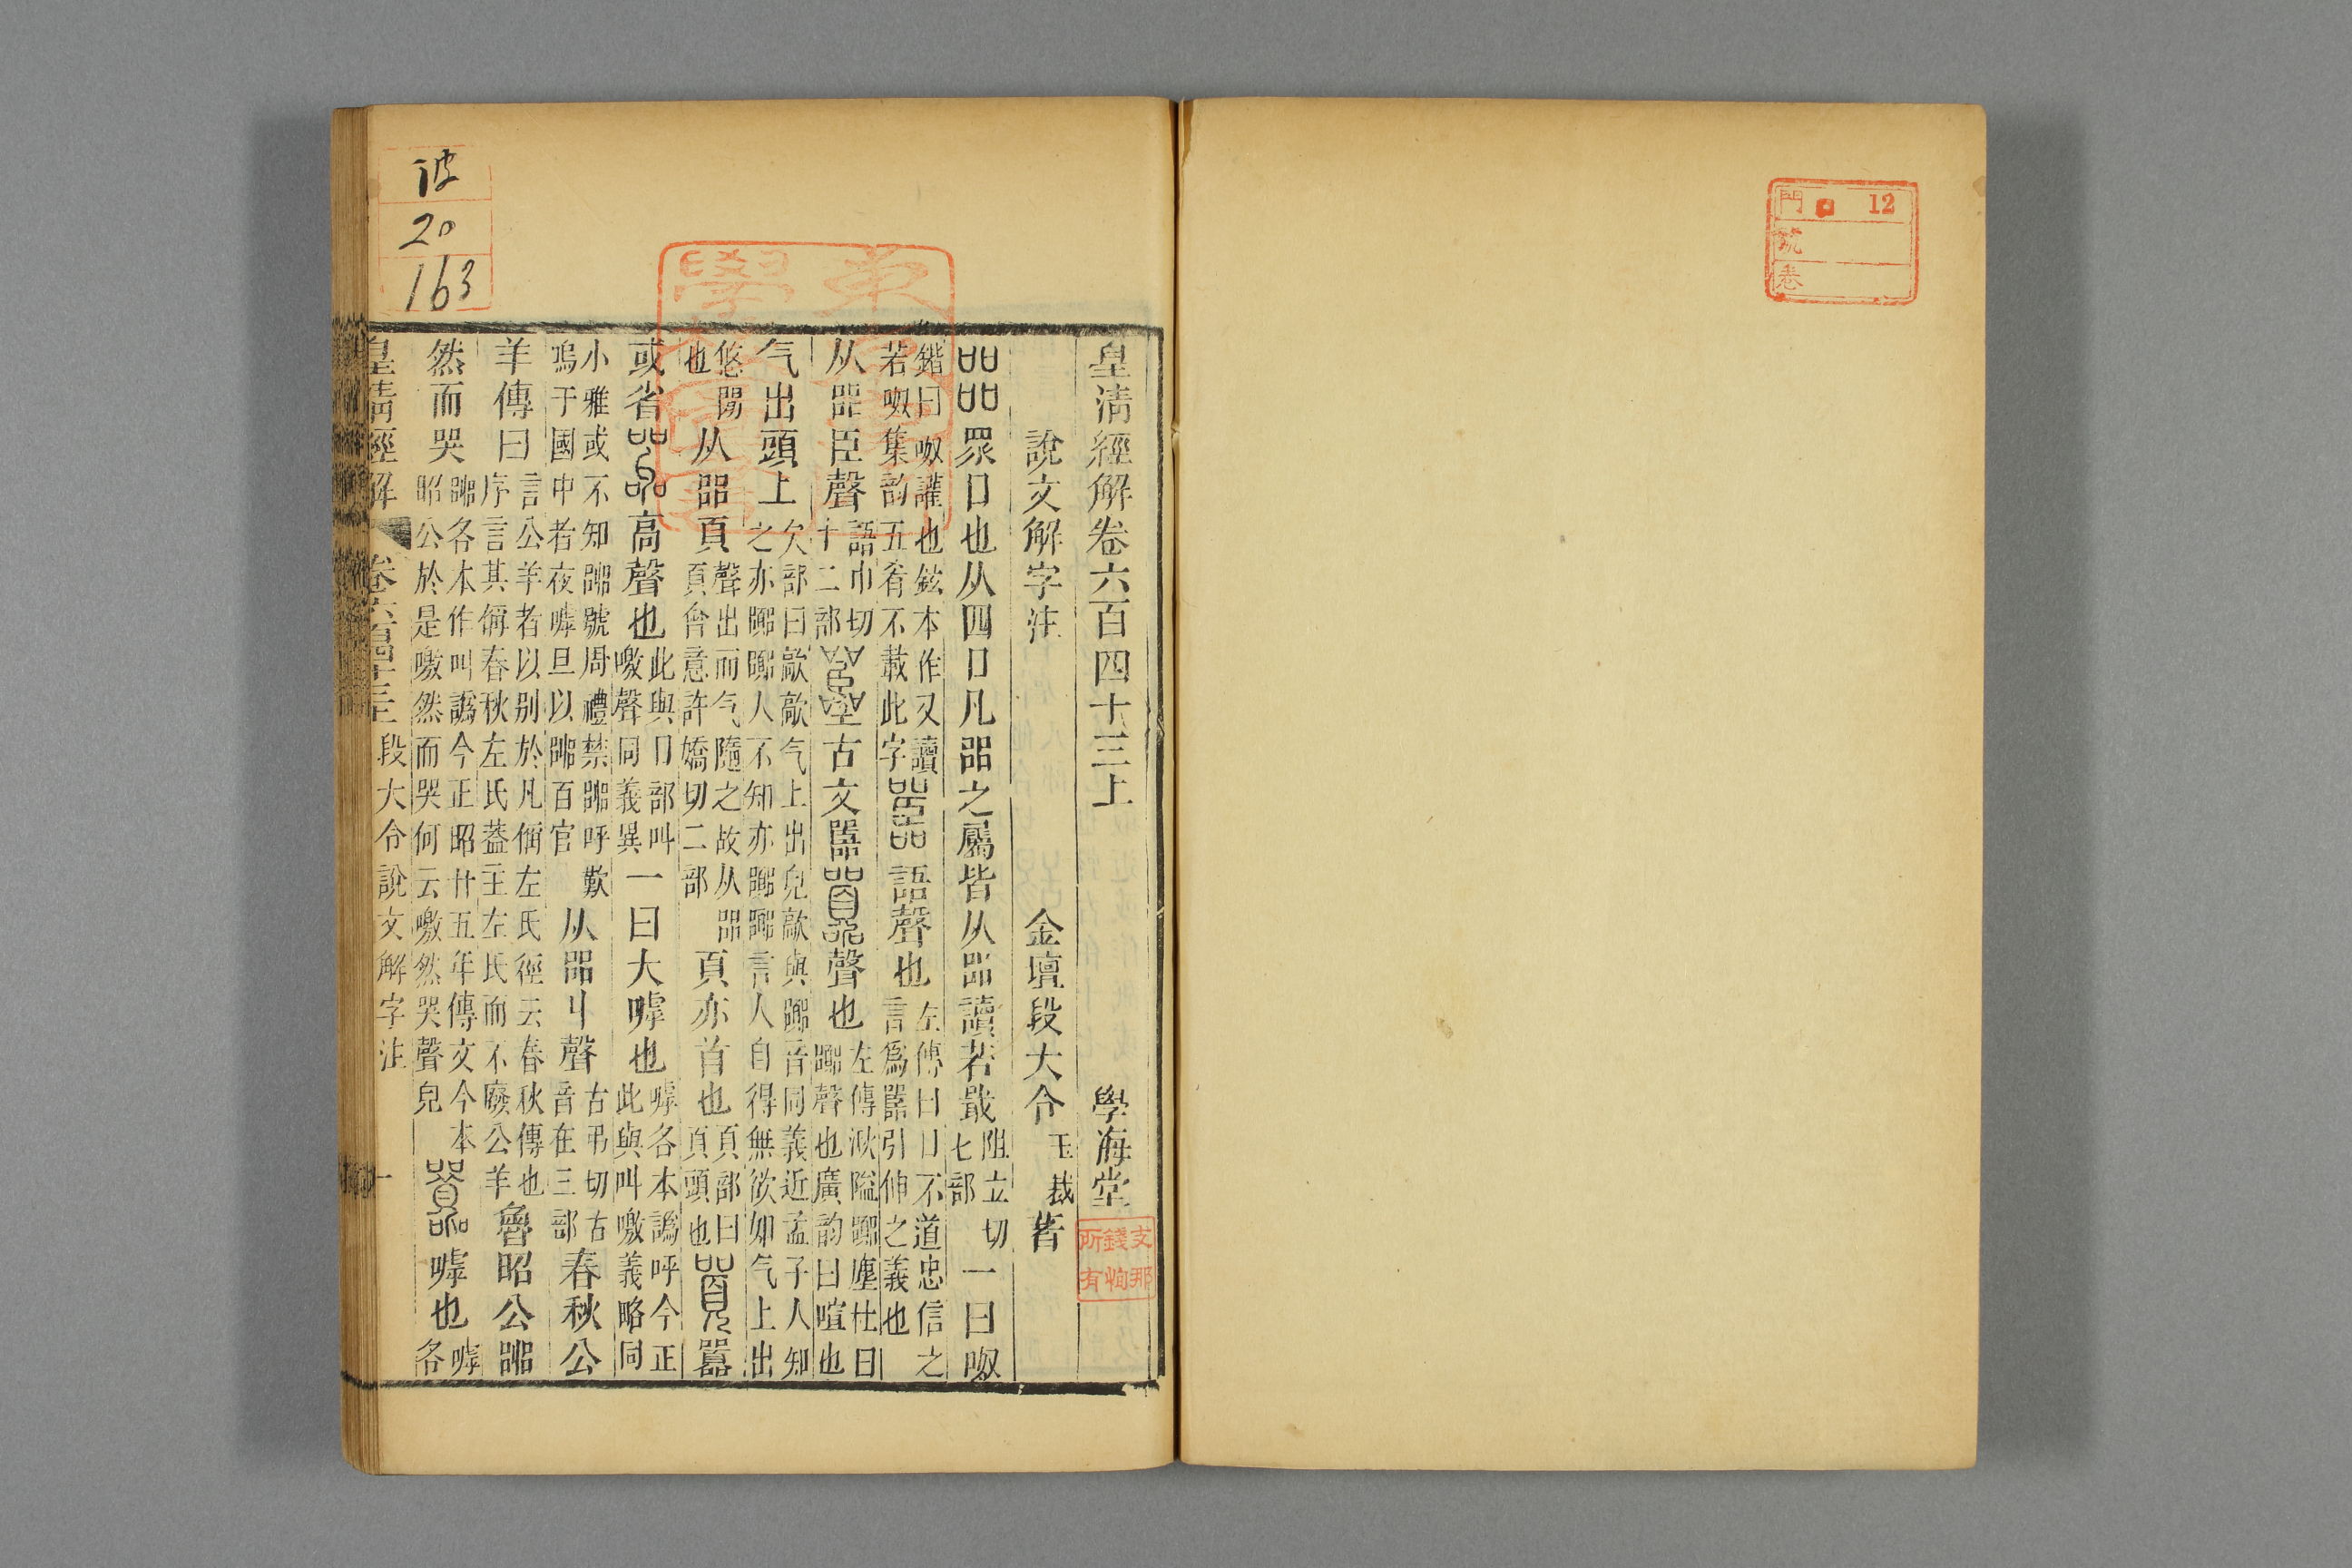 門 12
號
卷
皇清經解卷六百四十三上 學海堂
支那
錢恂
所有
說文解字注 金壇段大令玉裁著
㗊眾口也从四口凡㗊之屬皆从㗊讀若戢阻立切七部一曰呶
鍇曰呶讙也鉉本作又讀若呶集韵五肴不載此字嚚語聲也左傳曰口不道忠信之言爲嚚引伸之義也
从㗊臣聲語巾切十二部古文嚚囂聲也左傳湫隘囂塵杜曰囂聲也廣韵曰喧也
气出頭上欠部曰歊歊气上出皃歊與囂音同義近孟子人知之亦囂囂人不知亦囂囂言人自得無欲如气上出
悠閒也从㗊頁聲出而气隨之故从㗊頁會意許嬌切二部頁亦首也頁部曰頁頭也囂
或省嘂高聲也此與口部叫噭聲同義異一曰大嘑也嘑各本譌呼今正此與叫噭義略同
小雅或不知嘂號周禮禁嘂呼歎嗚于國中者夜嘑旦以嘂百官从㗊丩聲古弔切古音在三部春秋公
羊傳曰言公羊者以别於凡偁左氏徑云春秋傳也序言其偁春秋左氏葢主左氏而不廢公羊魯昭公嘂
然而哭嘂各本作叫譌今正昭廿五年傳文今本昭公於是噭然而哭何云噭然哭聲皃嘑也嘑各
皇清經解 卷六百四十三 段大令說文解字注 一
彼
20
163